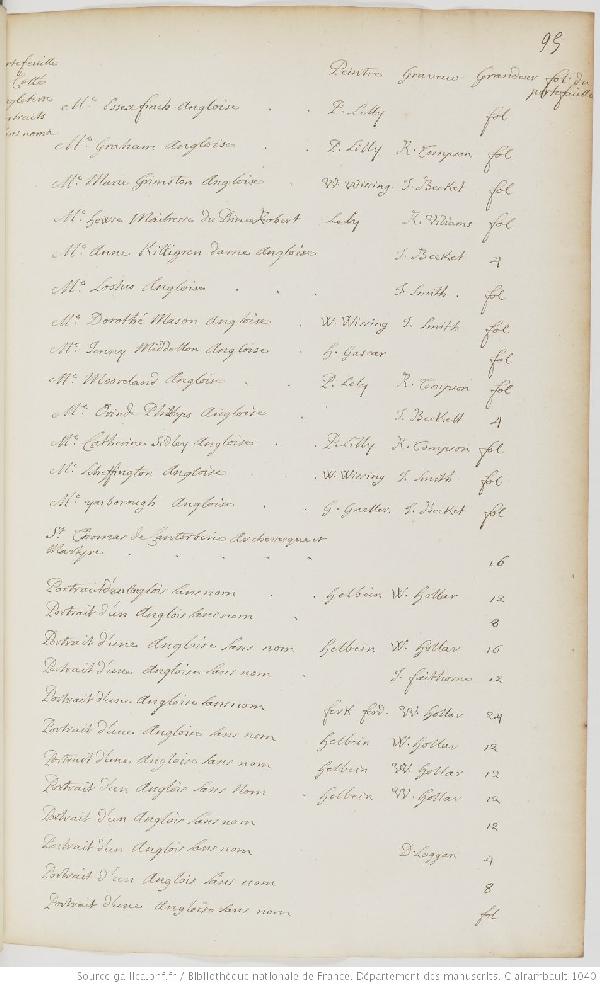 95
Peintre Graveur Grandeur fol. du portefeuille
portraits
sans noms
Me Essex finch Angloise P. Lilly fol
Me Graham Angloise P. Lilly R. Tompson fol
Me Marie Grimston Angloise W. Wissing I. Becket fol
Me Howse Maitresse du Prince Robert Lely R. Wiliams fol
Me Anne Killigren dame Angloise I. Becket 4
Me Loftus Angloise I. Smith fol
Me Dorothé Mason Angloise W. Wissing I. Smith fol
Me Jenny Middelton Angloise H. Gascar fol
Me Mooreland Angloise P. Lely R. Tompson fol
Me Orind Phillips Angloise I. Beckett 4
Me Catherine Sidley Angloise P. Lilly R. Tompson fol
Me Scheffington Angloise W. Wissing I. Smith fol
Me yarborough Angloise G. Gneller I. Becket fol
St Thomas de Cantorberie Archevesque et
Martyre 16
Portrait d'un Anglois sans nom Holbein W. Hollar 12
Portrait d'un Anglois sans nom 8
Portrait d'une Angloise sans nom Holbein W. Hollar 16
Portrait d'une Angloise sans nom I. faithorne 12
Portrait d'une Angloise sans nom W. Hollar 24
Portrait d'une Angloise sans nom Holbein W. Hollar 12
Portrait d'une Angloise sans nom Holbein W. Hollar 12
Portrait d'un Anglois sans Nom Holbein W. Hollar 12
Portrait d'un Anglois sans nom 12
Portrait d'un Anglois sans nom D. Loggan 4
Portrait d'un Anglois sans nom 8
Portrait d'une Angloise sans nom fol
Source gallica.bnf.fr / Bibliothèque nationale de France. Département des manuscrits. Clairambault 1040